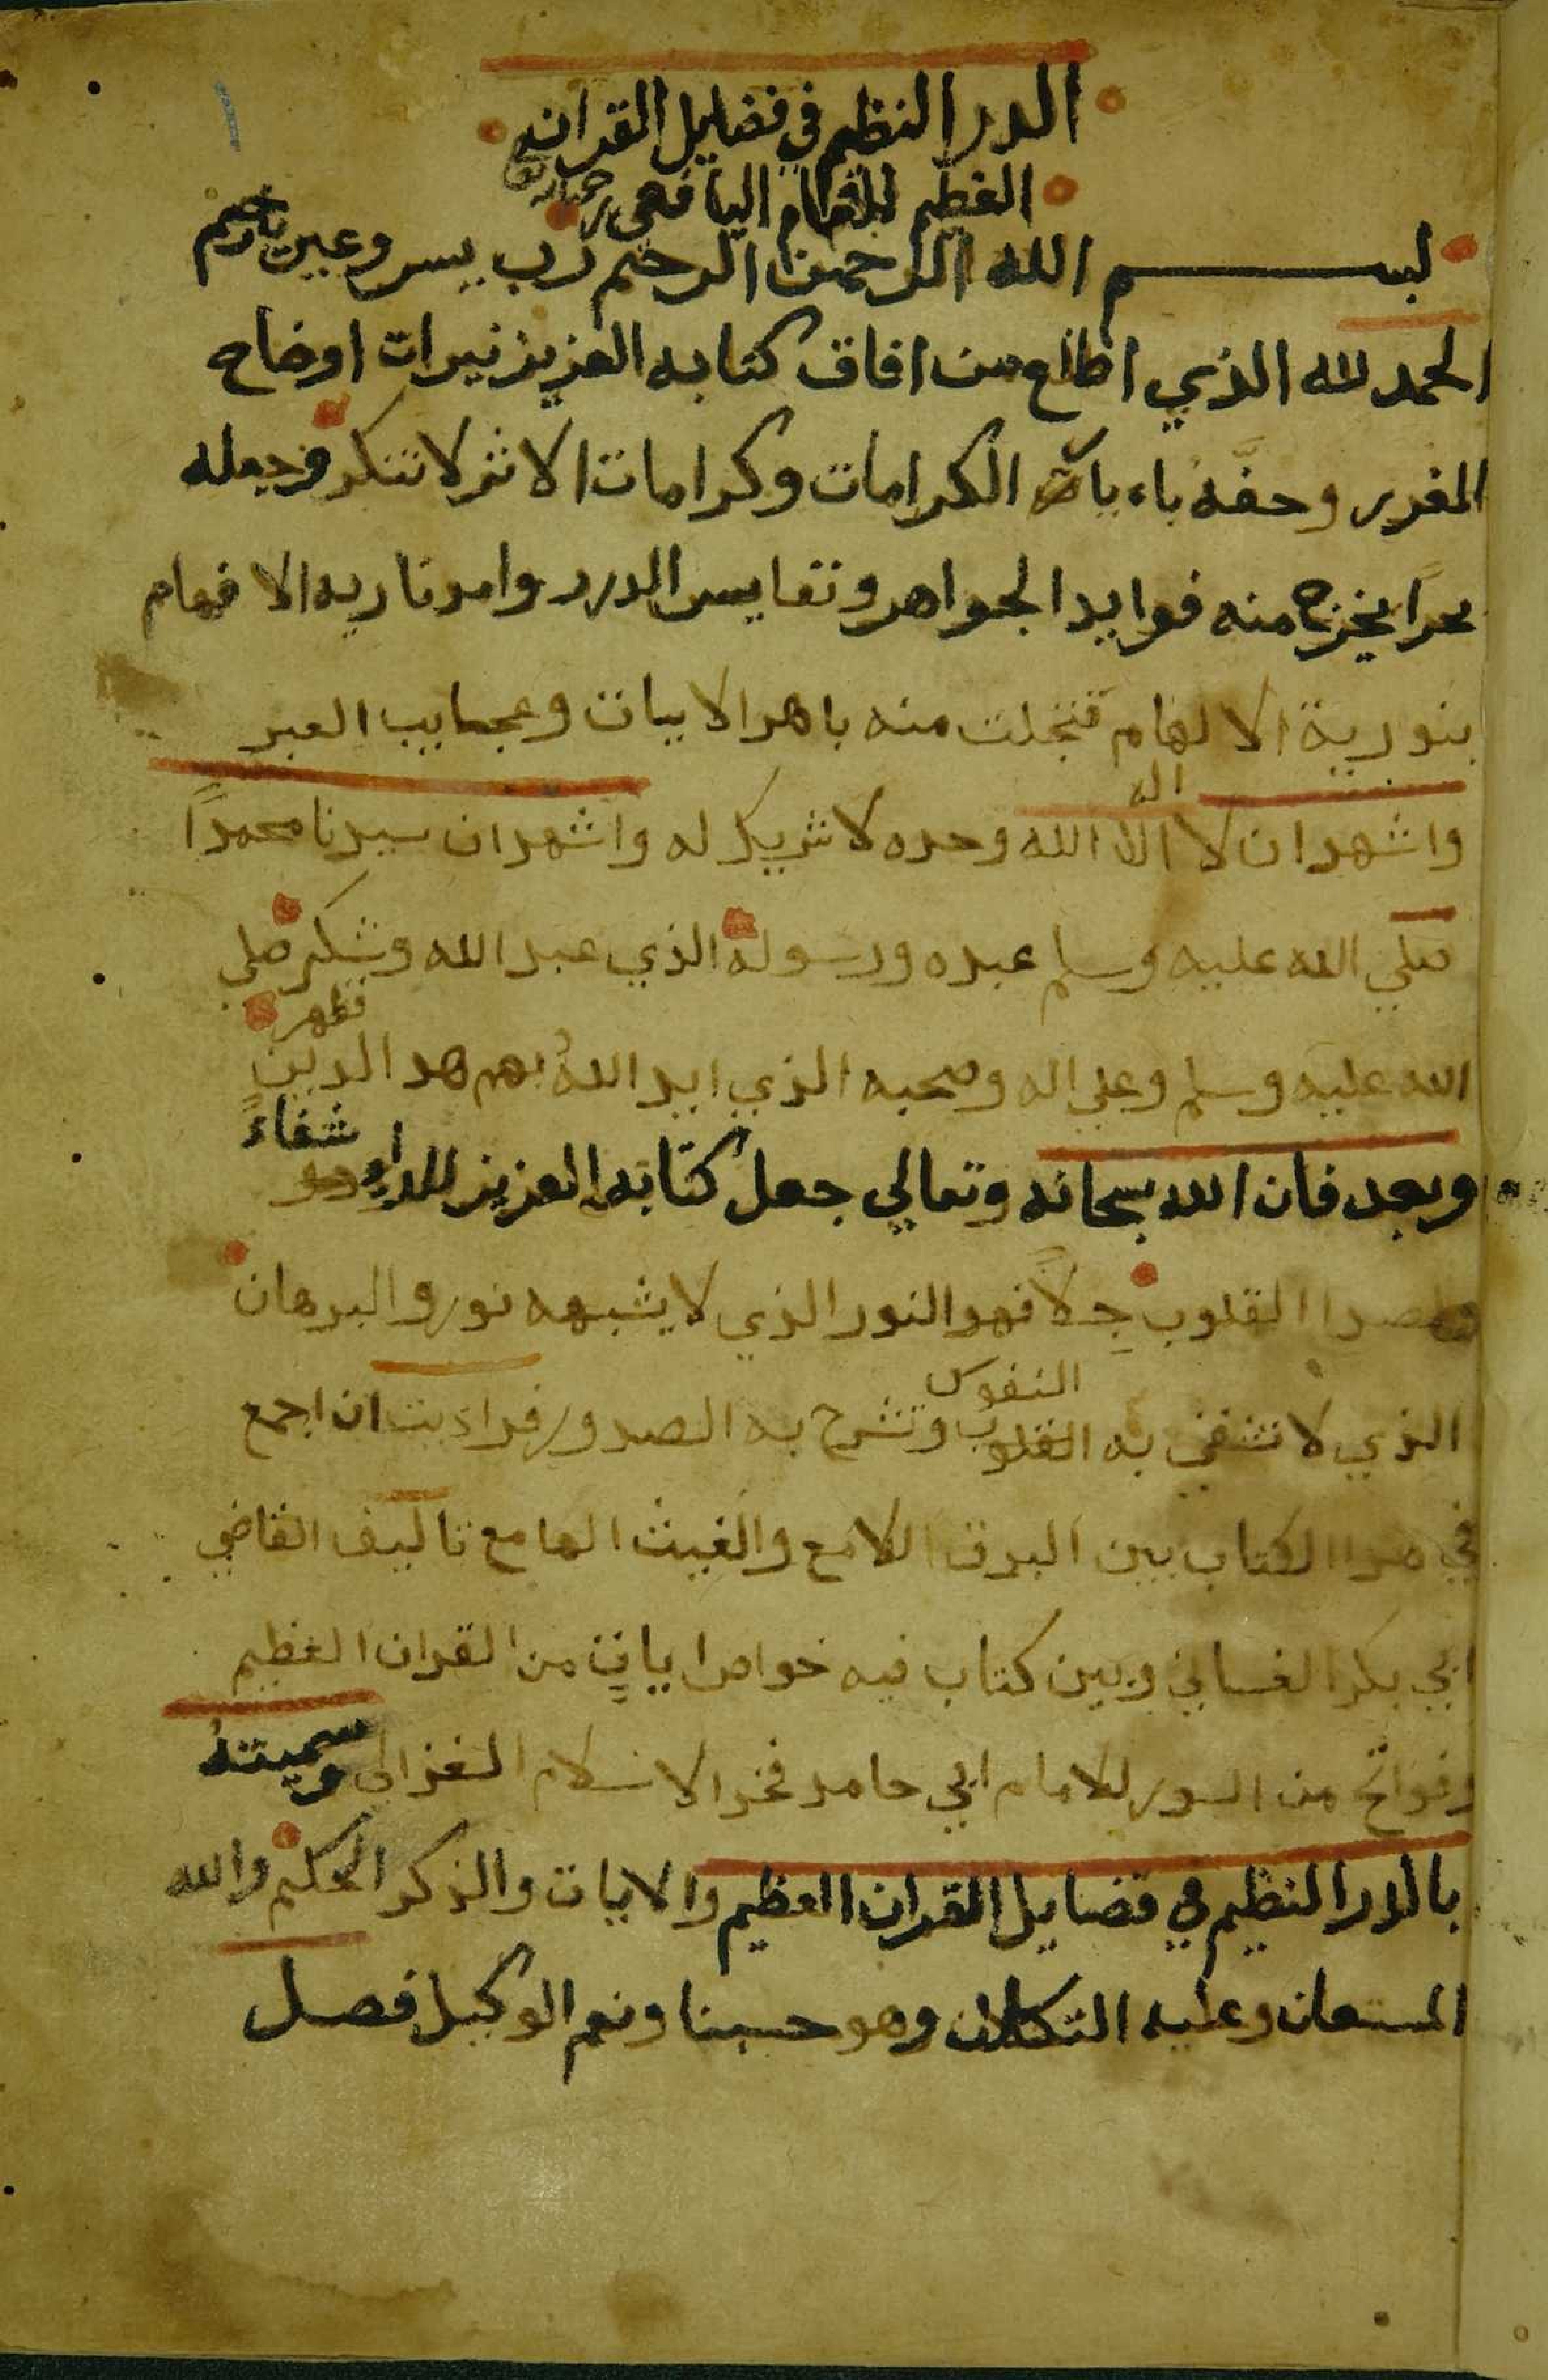 الدر النظيم في فضايل القران
العظيم للامام اليافعي
بسم الله الرحمن الرحيم رب يسر وعين ياكريم
الحمد لله الذي اطلع من افاق كتابه العزيز نيرات اوضاح
الغرر وحفه باء يات الكرامات وكرامات الاثر لا تنكر وجعله
بحراً يخرج منه فوايد الجواهر ونفايس الدرر وامد ناريه الافهام
بنورية الالهام فتجلت منه باهر الايات وعجايب العبر
واشهد ان لا اله الا الله وحده لا شريك له واشهد ان سيدنا محمداً
صلي الله عليه وسلم عبده ورسوله الذي عبد الله وشكر صلي
الله عليه وسلم وعلي اله وصحبه الذي ايد اللهُ بهم هد الدين فظهر
وبعد فان الله سبحانه وتعالي جعل كتابه العزيز للداء شفاءً
ولصدا القلوب جِلاً فهو النور الذي لا يشبهه نور والبرهان
الذي لا تشفي به النفوس القلوب وتشرح به الصدور فراءيت ان اجمع
في هدا الكتاب بين البرق اللامع والغيث الهامع تاليف القاضي
ابي بكر الغساني وبين كتاب فيه خواص اياتٍ من القران العظيم
وفواتح من السور للامام ابي حامد فخر الاسلام الغزالي وسميته
بالدر النظيم في فضايل القران العظيم والايات والذكر الحكيم والله
المستعان وعليه التكلان وهو حسبنا ونعم الوكيل فصل